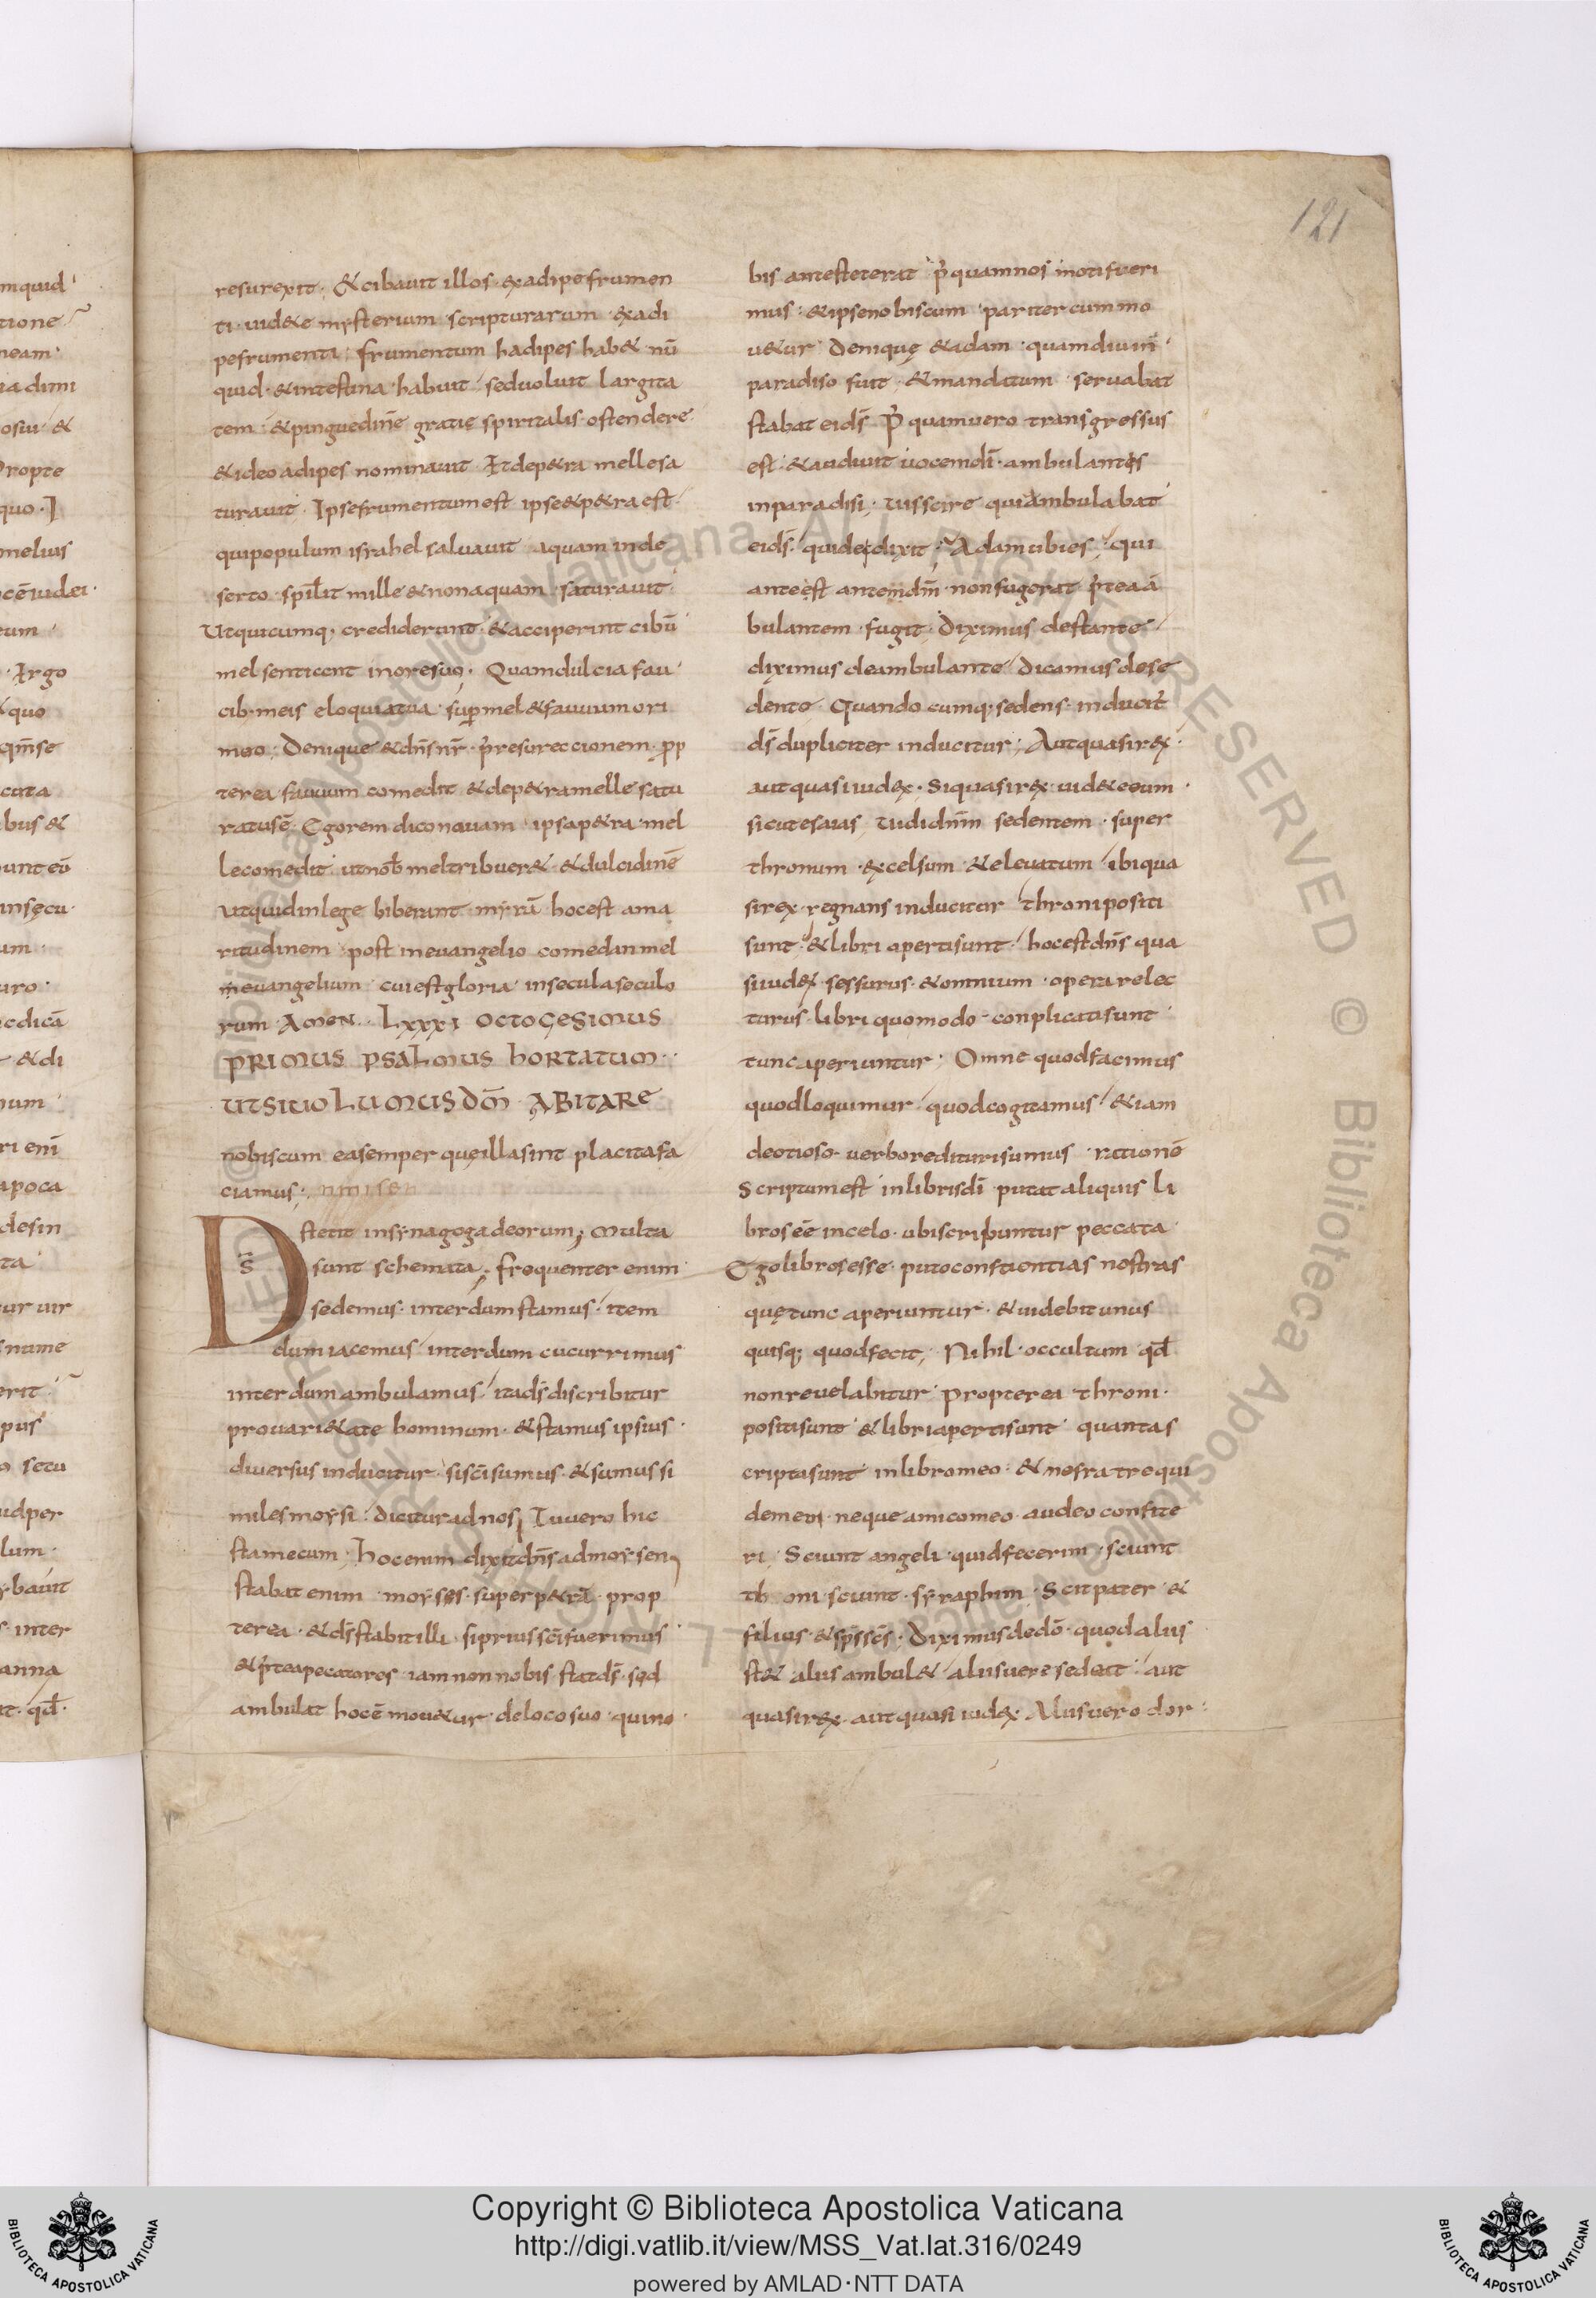 121
resurexit · & cibauit illos · ex adipe frumen
ti · uidete mysterium scripturarum · ex adi
pe frumenti · frumentum hadipes hab& nū
quid · & intestina habuit · sed uoluit largita
tem · & pinguedinē gratię spiritalis ostendere
& ideo adipes nominauit · It de p&ra melle sa
turauit · Ipse frumentum est ipse & p&ra est ·
qui populum israhel saluauit · aquam in de
serto · mille & non aquam saturauit
ut quicumq; crediderunt · & acciperint cibū
mel senticent in ore suo · Quam dulcia fau
cib· meis eloquia tua · sup mel & fauum ori
meo · Denique & dn̄s nr̄ · resureccionem · prop
terea fauuum comedit & de p&ra melle satu
ratus ē · Ego rem dico nouam · ipsa p&ra mel
le comedit · ut nob̄ mel tribuer& · & dulcidinē
ut qui in lege biberunt myrā hoc est ama
ritudinem post in euangelio comedan mel
in euangelium cui est gloria in secula seculo
rum · Amen · LXXXI OCTOGESIMUS
PRIMUS PSALMUS HORTATUM ·
UT SI UOLUMUS DM̄ ABITARE
nobiscum ea semper que illa sint placita fa
ciamus ;
Ds̄ stetit in synagoga deorum ; Multa
sunt schemata ; frequenter enim
sedemus · interdum stamus · item
dum iacemus interdum cucurrimus
interdum ambulamus / ita ds̄ discribitur
pro uari&ate hominum · & stamus ipsius ·
diuersus inducitur · si sc̄i sumus · & sumus si
miles moysi · dicitur ad nos ; Tu uero hic
sta mecum ; hoc enim dixit dn̄s ad moysen ;
stabat enim moyses super p&rā · prop
terea · & ds̄ stabit illi · si prius sc̄i fuerimus
& p̄tea pecatores iam non nobis stat ds̄ · sed
ambulat hoc ē mou&ur de loco suo · qui no
bis ante steterat p̄ quam nos moti fueri
mus · & ipse nobiscum pariter cum mo
u&ur · Denique & adam · quamdiu in
paradiso fuit · & mandatum seruabat
stabat ei ds̄ · P̄ quam uero transgressus
est · & audiuit uocem dī · ambulantis
in paradisi ; uis scire quia ambulabat
ei ds̄ · quid ei dixit ; Adam ubi es ; qui
ante est ante dm̄ · non fugerat p̄tea ā
bulantem fugit · Diximus de stante /
diximus deambulante / dicamus de se
dente · Quandocumq; sedens inducit
ds̄ dupliciter inducitur ; Aut quasi rex ·
aut quasi iudex · Si quasi rex uid& eum ·
sicut esaias uidi dn̄m sedentem · super
thronum excelsum & eleuatum / ibi qua
si rex regnans inducitur / throni positi
sunt · & libri aperti sunt / hoc est dn̄s qua
si iudex sessurus & omnium · opera relec
turus · libri quomodo conplicati sunt
tunc aperiuntur ; Omne quod facimus
quod loquimur / quod cogitamus / & iam
de otioso uerbo redituri sumus rationē
Scriptum est in libris dī · putat aliquis li
bros eē in celo · ubi scribuntur peccata
Ego libros esse puto conscientias nostras
que tunc aperiuntur · & uidebit unus
quisq; quod fecit ; Nihil occultum qd̄
non reuelabitur · propterea throni ·
positi sunt & libri aperti sunt quanta s
cripta sunt in libro meo · & ne fratre qui
dem · neque amico meo audeo confite
ri · Sciunt angeli quid fecerim · sciunt
th oni sciunt · syraphim · Scit pater &
filius & sp̄s sc̄s · Diximus de dō quod aliis
st& aliis ambul& / aliis uere sedeat · aut
quasi rex · aut quasi iudex Aliis uero dor
BIBLIOTECA APOSTOLICA VATICANA
Copyright © Biblioteca Apostolica Vaticana
http://digi.vatlib.it/view/MSS_Vat.lat.316/0249
powered by AMLAD·NTT DATA
BIBLIOTECA APOSTOLICA VATICANA